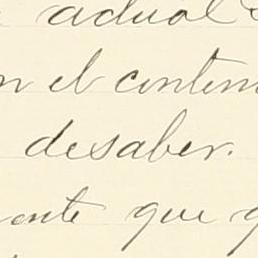 actual
en el conten
desaber.
onte que q